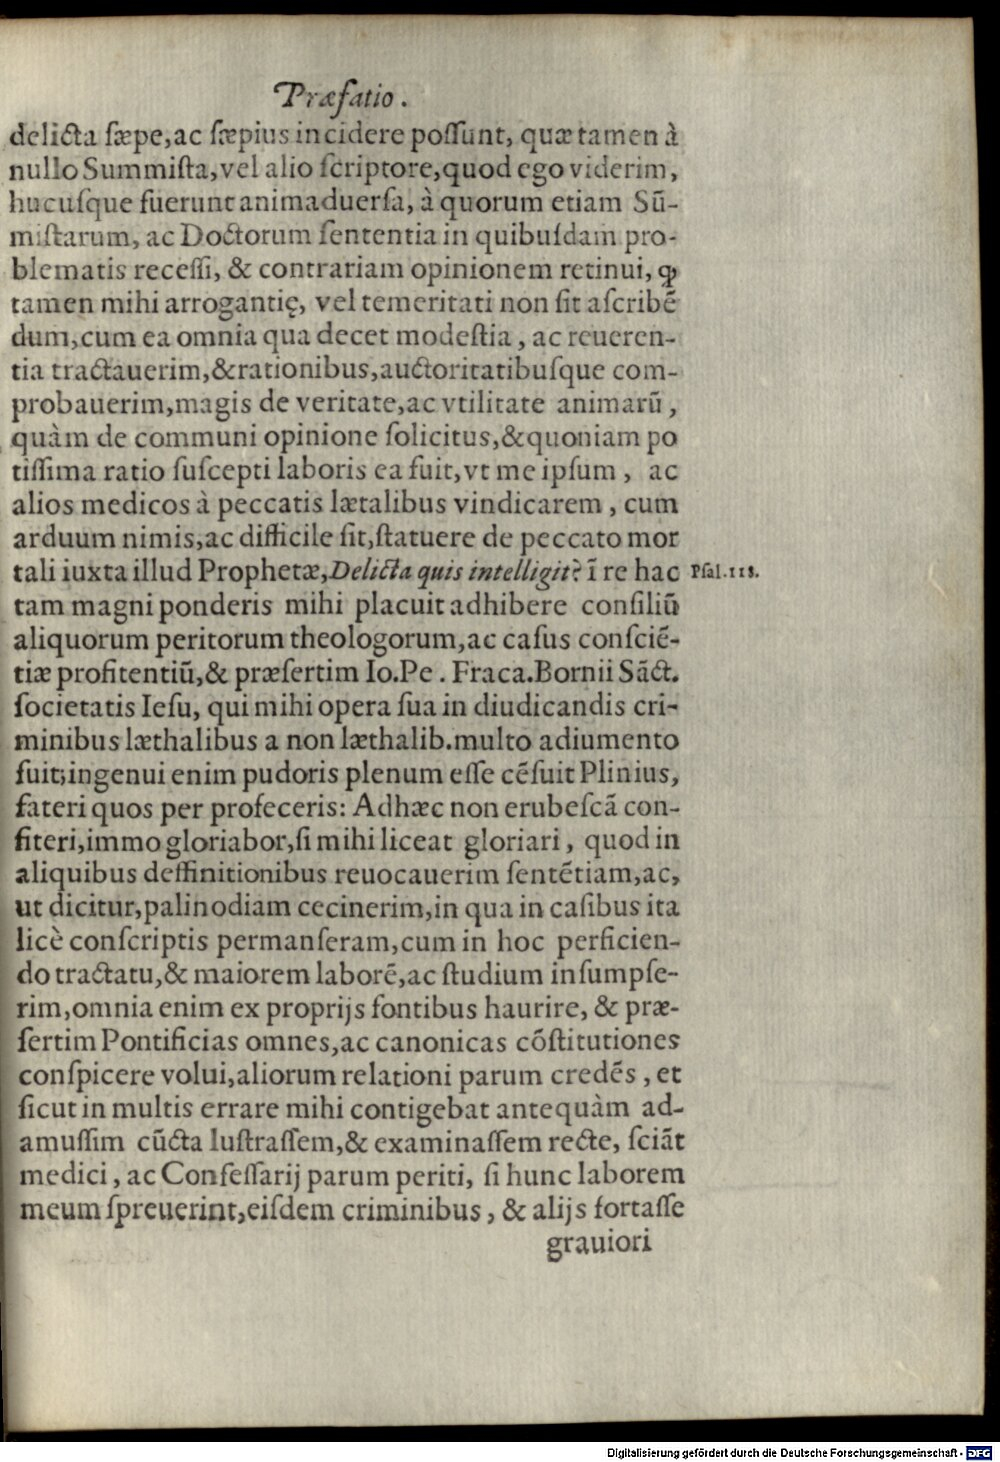 Præfatio.
delicta ſæpe, ac ſæpius incidere poſſunt, quæ tamen à
nullo Summiſta, vel alio ſcriptore, quod ego viderim,
hucuſque fuerunt animaduerſa, à quorum etiam Sũ-
miſtarum, ac Doctorum ſententia in quibuſdam pro-
blematis receſſi, & contrariam opinionem retinui, ꝙ
tamen mihi arrogantię, vel temeritati non ſit aſcribẽ
dum, cum ea omnia qua decet modeſtia, ac reueren-
tia tractauerim, & rationibus, auctoritatibuſque com-
probauerim, magis de veritate, ac vtilitate animarũ,
quàm de communi opinione ſolicitus, & quoniam po
tiſſima ratio ſuſcepti laboris ea fuit, vt me ipſum, ac
alios medicos à peccatis lætalibus vindicarem, cum
arduum nimis, ac difficile ſit, ſtatuere de peccato mor
tali iuxta illud Prophetæ, Delicta quis intelligit? ĩ re hac Pſal.118.
tam magni ponderis mihi placuit adhibere conſiliũ
aliquorum peritorum theologorum, ac caſus conſciẽ-
tiæ profitentiũ, & præſertim Io. Pe. Fraca. Bornii Sãct.
ſocietatis Ieſu, qui mihi opera ſua in diudicandis cri-
minibus læthalibus a non læthalib. multo adiumento
fuit; ingenui enim pudoris plenum eſſe cẽſuit Plinius,
fateri quos per profeceris: Adhæc non erubeſcã con-
fiteri, immo gloriabor, ſi mihi liceat gloriari, quod in
aliquibus deffinitionibus reuocauerim ſentẽtiam, ac,
ut dicitur, palinodiam cecinerim, in qua in caſibus ita
licè conſcriptis permanſeram, cum in hoc perficien-
do tractatu, & maiorem laborẽ, ac ſtudium inſumpſe-
rim, omnia enim ex proprijs fontibus haurire, & præ-
ſertim Pontificias omnes, ac canonicas cõſtitutiones
conſpicere volui, aliorum relationi parum credẽs, et
ſicut in multis errare mihi contigebat antequàm ad-
amuſſim cũcta luſtraſſem, & examinaſſem recte, ſciãt
medici, ac Confeſſarij parum periti, ſi hunc laborem
meum ſpreuerint, eiſdem criminibus, & alijs fortaſſe
grauiori
Digitalisierung gefördert durch die Deutsche Forschungsgemeinschaft - DFG